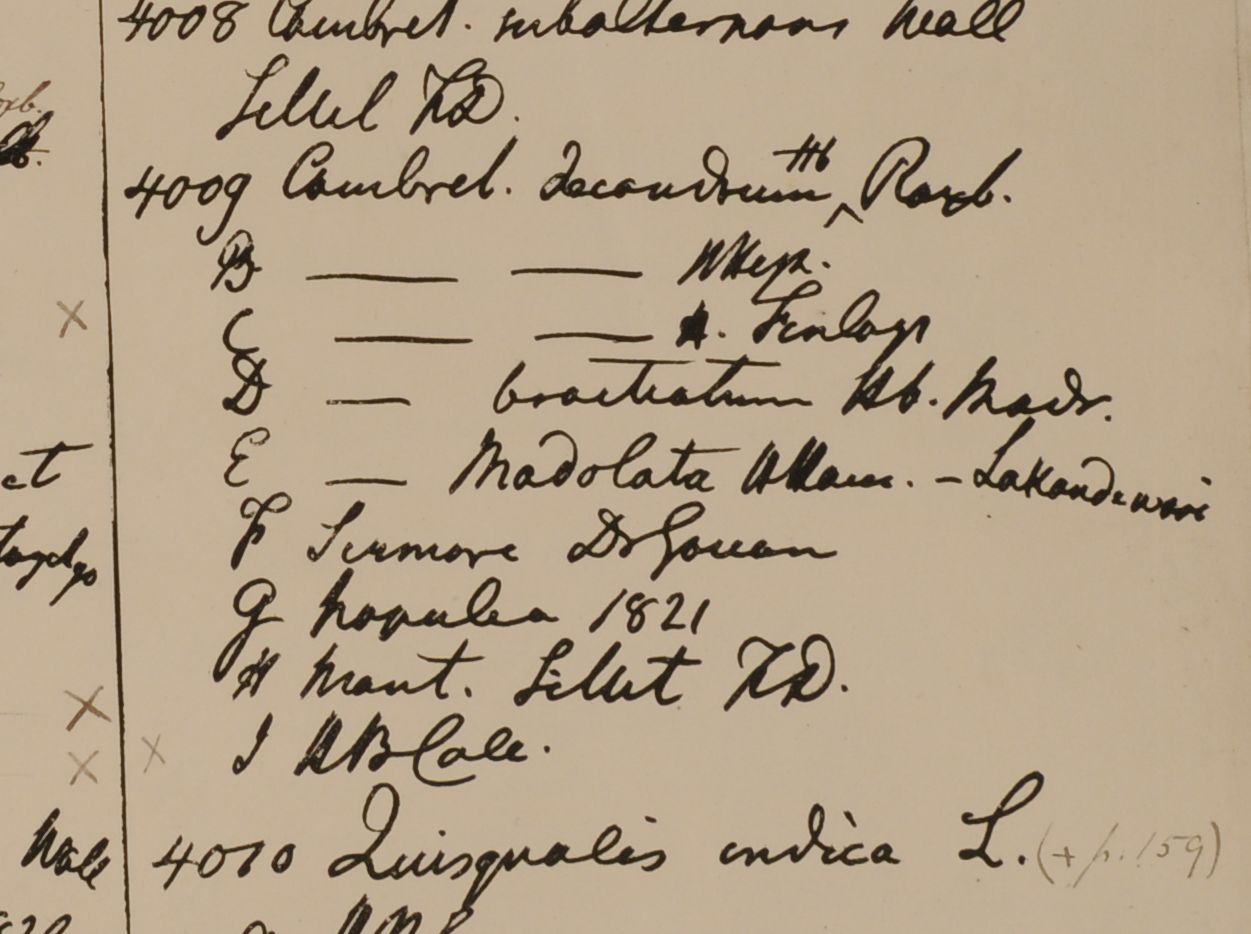 4008 Combret. subalternans Wall
Sillet FD.
4009 Combret. decandrum Hb Roxb.
B — — HHeyn.
C — — H. Finlays
D — bracteatum Hb. Madr.
E — Madolata HHam. - Lakandewari
F Sirmore Dr Govan
G Napulia 1821
H Mont. Sillet FD.
I HBCalc.
4010 Quisqualis indica L. (+ p. 159)
Wall